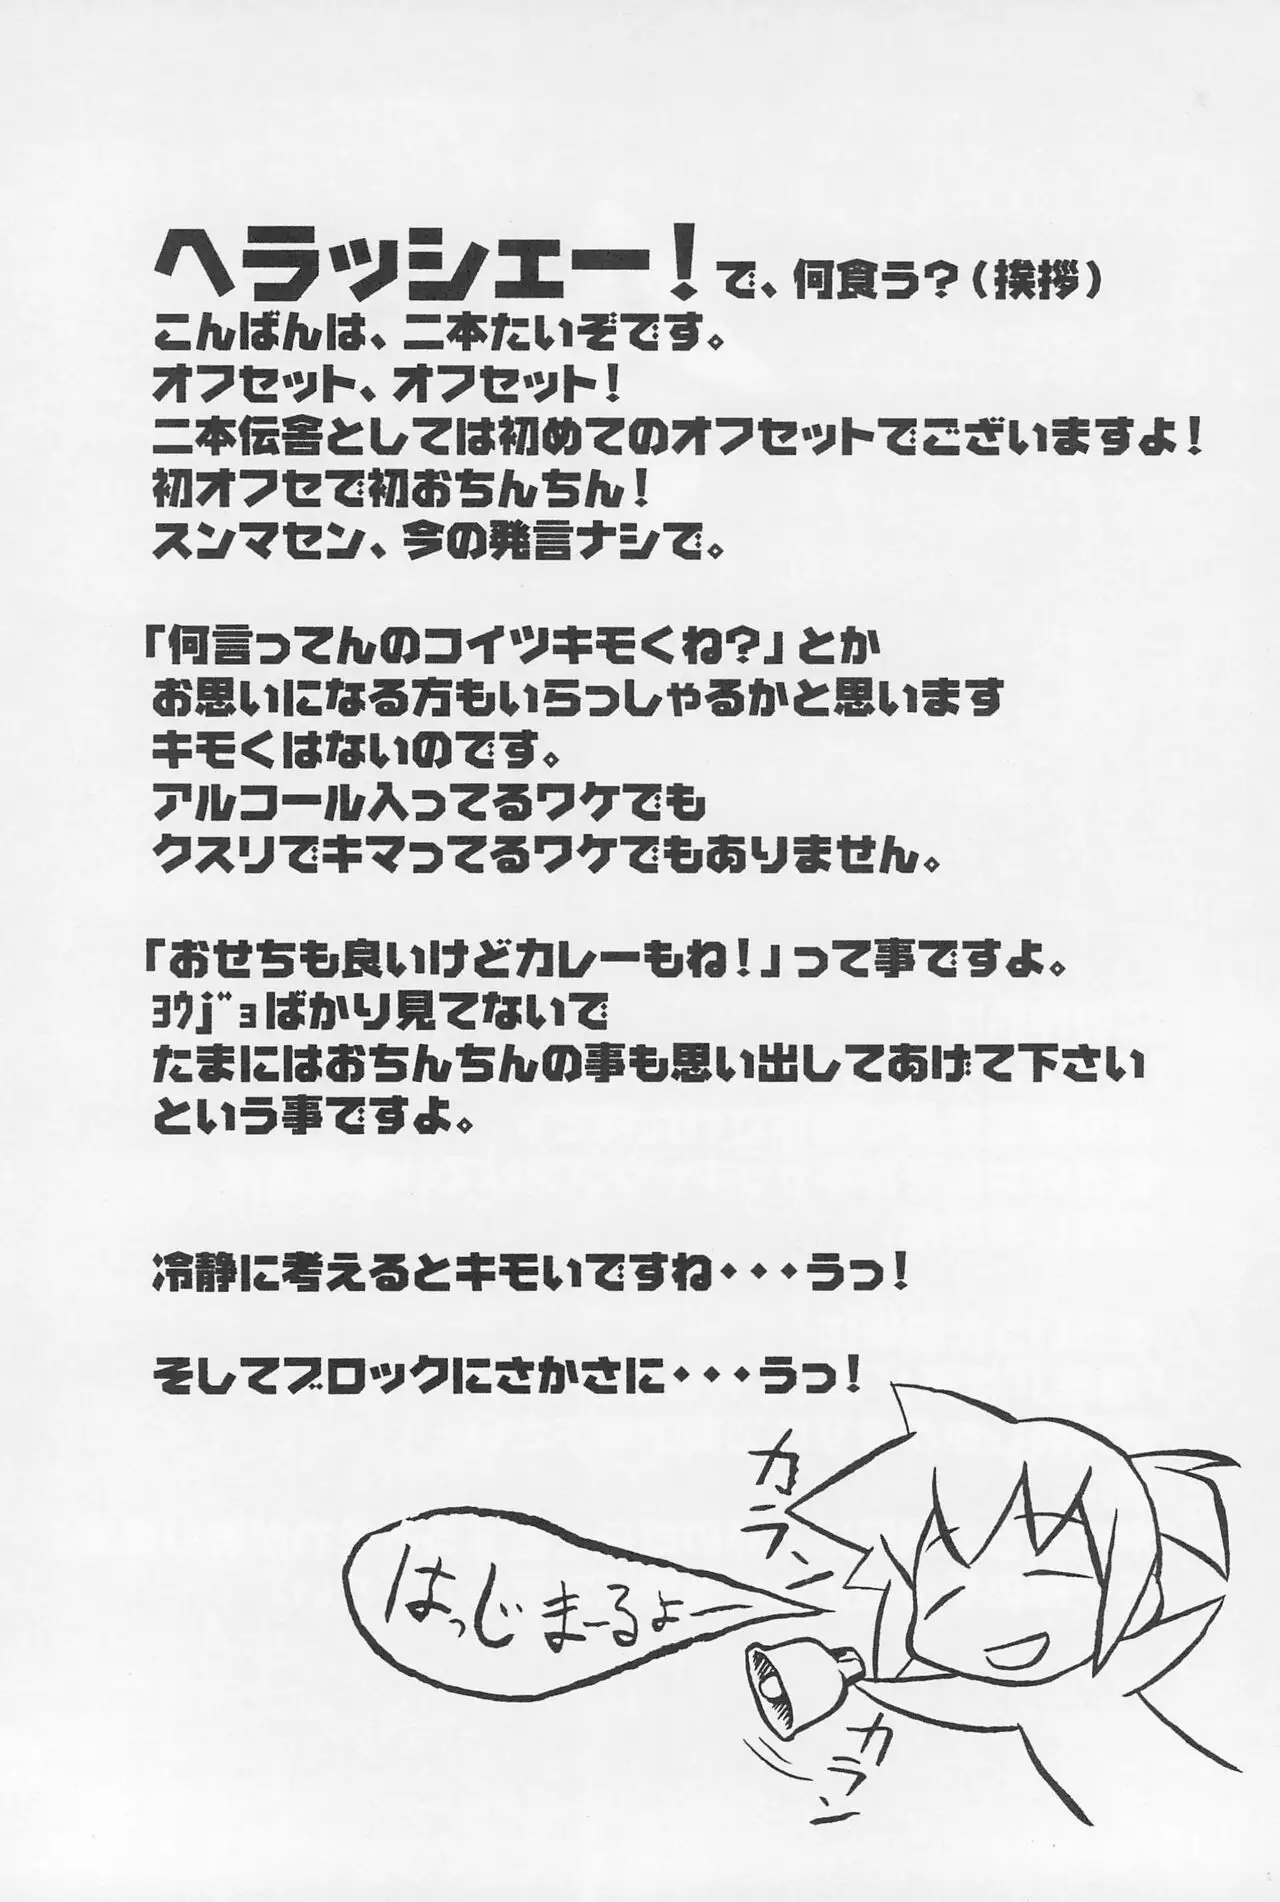 ヘラッシェー！で、何食う？（挨拶）
こんばんは、二本たいぞです。
オフセット、オフセット！
二本伝舎としては初めてのオフセットでございますよ！
初オフセで初おちんちん！
スンマセン、今の発言ナシで。
「何言ってんのコイツキモくね？」とか
お思いになる方もいらっしゃるかと思います
キモくはないのです。
アルコール入ってるワケでも
クスリでキマってるワケでもありません。
「おせちも良いけどカレーもね！」って事ですよ。
ﾖｳj゛ｮばかり見てないで
たまにはおちんちんの事も思い出してあげて下さい
という事ですよ。
冷静に考えるとキモいですね・・・うっ！
そしてブロックにさかさに・・・うっ！
カラン
はっじまーるよー
カラン